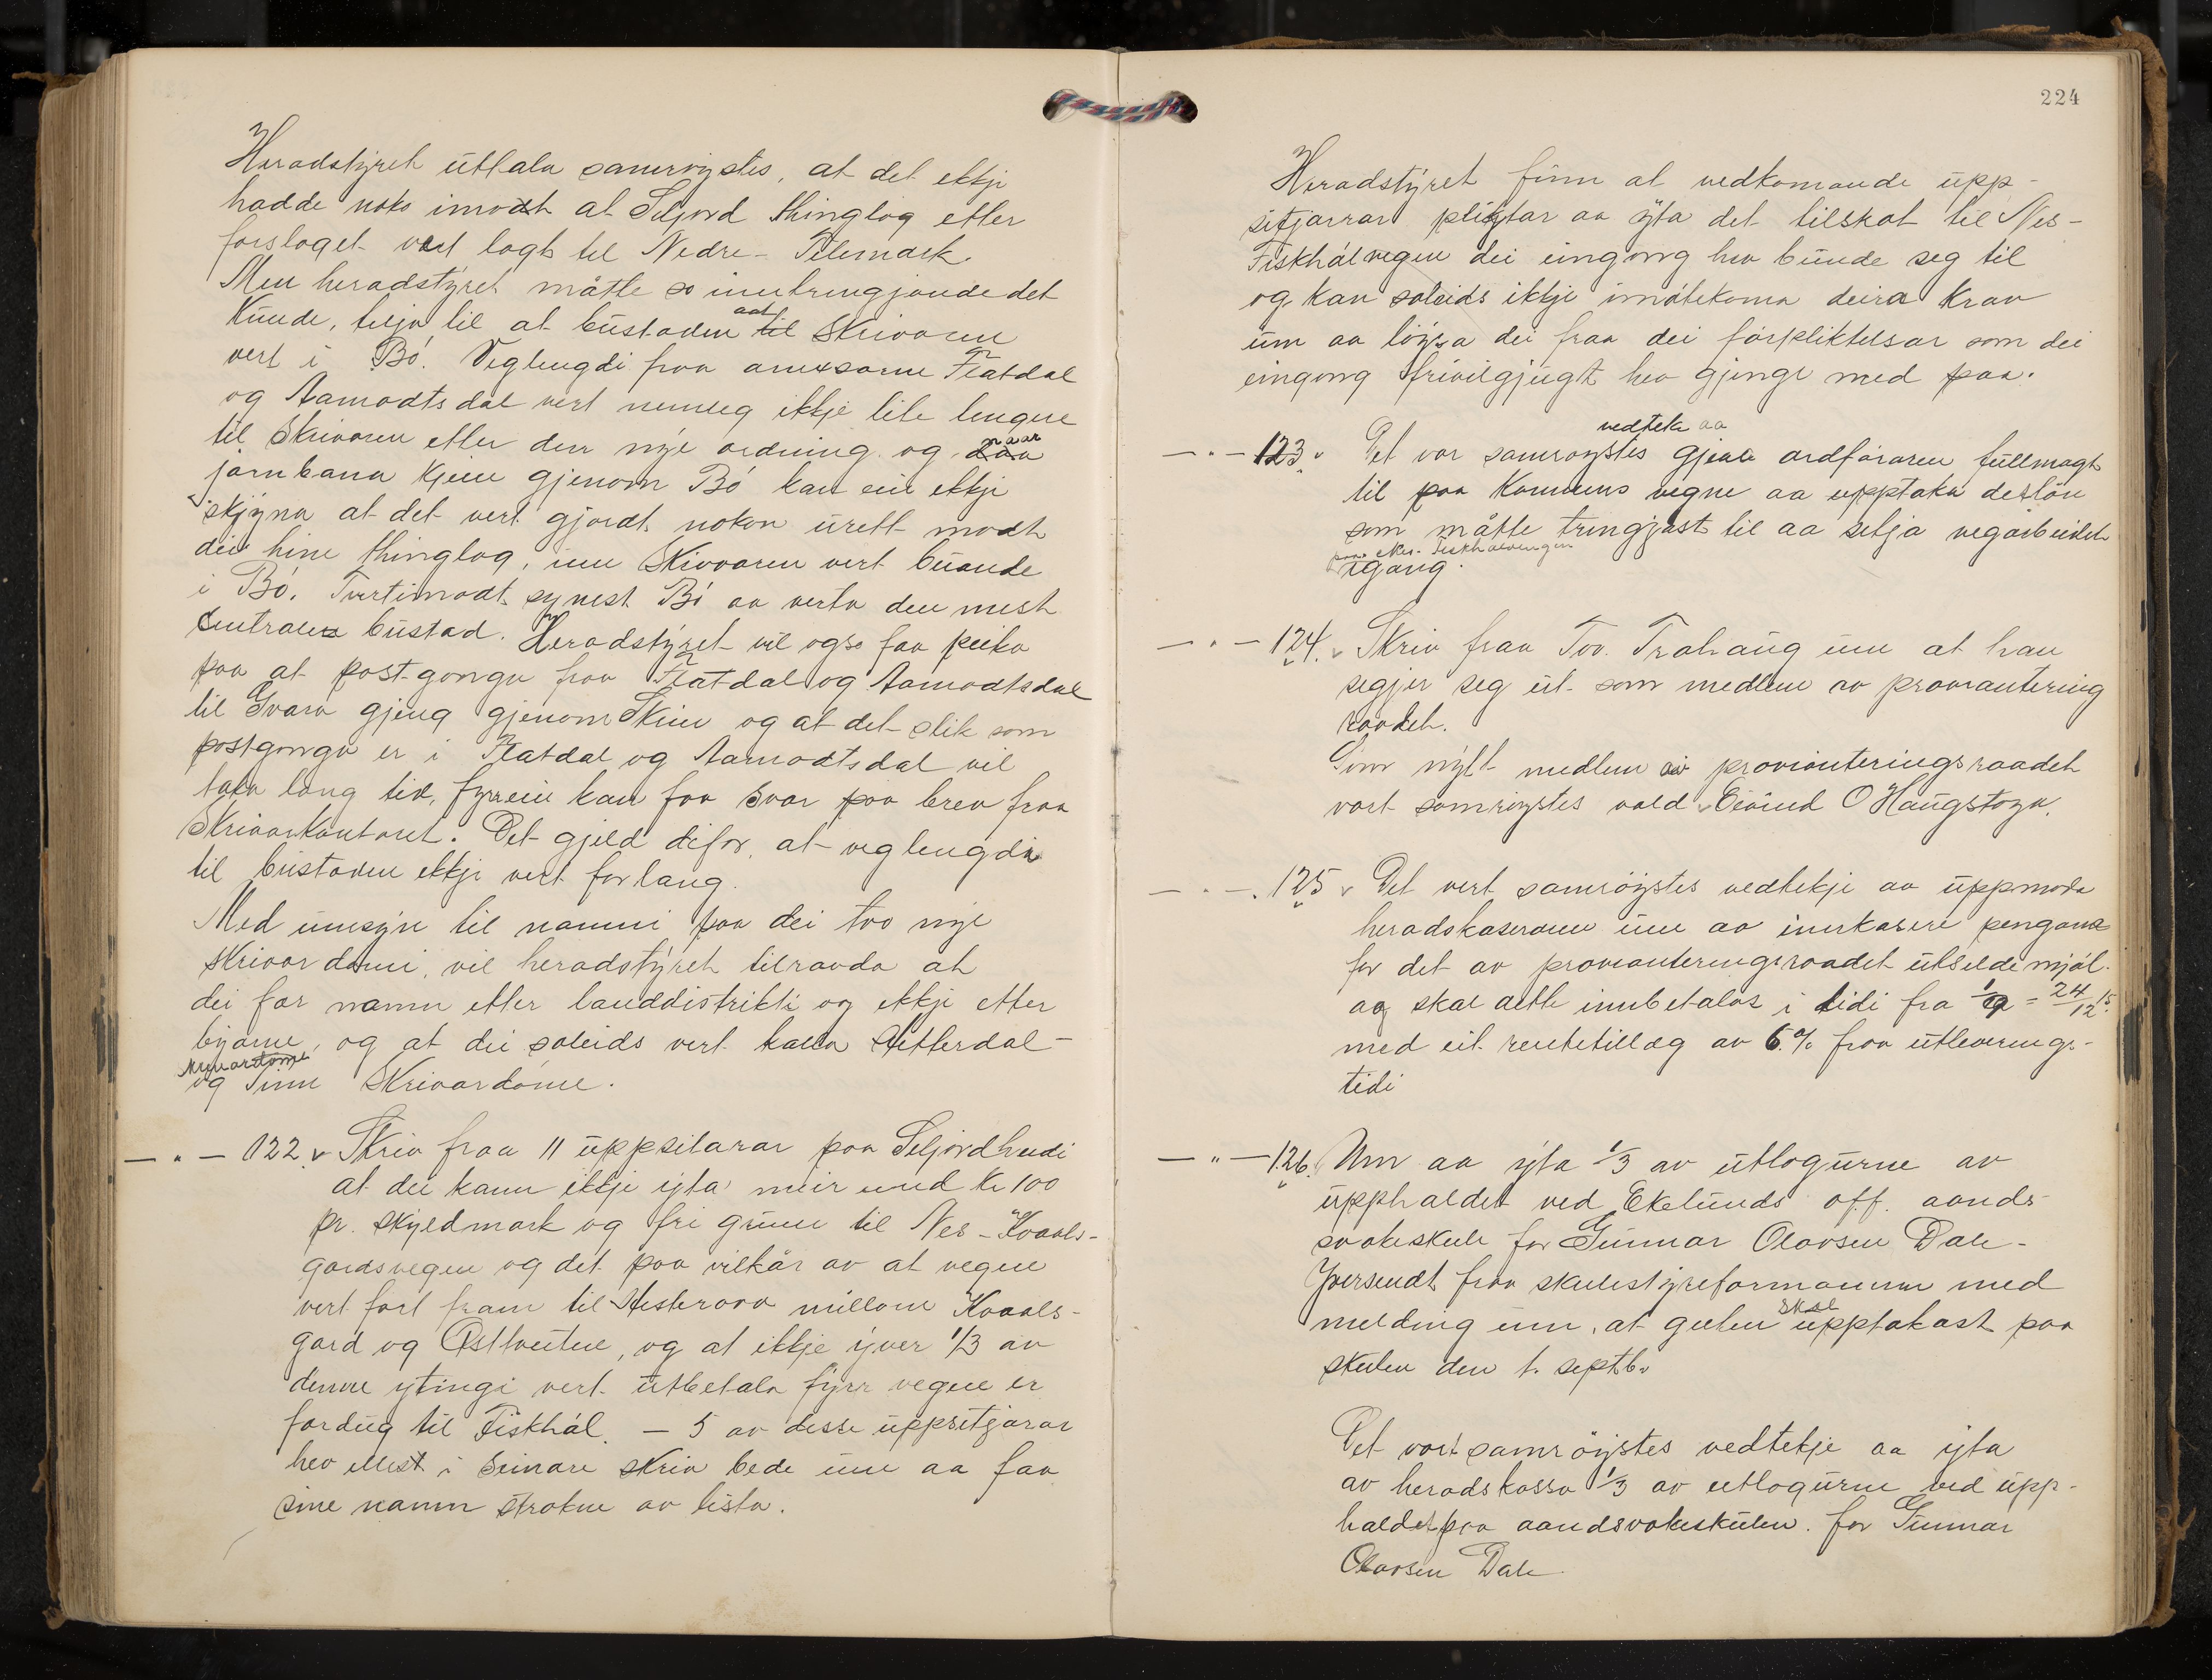 Heradstyret uttala samrøystes, at det ekkje
hadde noko imodt at Seljord thinglog etter
forslaget vert lagt til Nedre-Telemark.
Men heradstyret måtte so inntrengjande det
kunde, telja til at bustaden aat til skrivaren
vert i Bø. Veglengdi fraa annexsorne Flatdal
og Aamodtsdal vert nemleg ikkje lite lengre
til skrivaren etter den nye ordning og naar
jarnbana kjem gjenom Bø kan ein ekkje
skjyna at det vert gjordt nokon urett modt
dei hine thinglog, um Skrivaren vert buande
i Bø. Tvertimodt synest Bø aa verta den mest
centrale bustad. Heradstyret vil ogso faa peika
paa at postgonga fraa Flatdal og Aamodtsdal
til Gvarv gjeng gjenom Skien og at det slik som
postgonga er i Flatdal og Aamodtsdal vil
taka lang tid, fyrr ein kan faa svar paa brev fraa
Skrivarkontoret. Det gjeld difor, at veglengdi
til bustaden ekkje vert for lang.
Med umsyn til namni paa dei tvo nye
skrivardømi, vil heradstyret tilraada at
dei faar namn etter landdistrikti og ekkje etter
byarne, og at dei soleids vert kalla Hitterdal-
skrivardøme
og Tinn Skrivardøme.
— " — 122. v Skriv fraa 11 uppsitarar paa Seljordheidi
at dei kann ikkje yta meir end kr 100
pr. skyldmark og fri grunn til Nes-Kvaals-
gardsvegen og det paa vilkår av at vegen
vert ført fram til Hesteraaa millom Kvaals-
gard og Østtveitne, og at ikkje yver 1/3 av
denne ytingi vert utbetala fyrr vegen er
fardug til Fiskhål. — 5 av desse uppsitjarar
hev ellest i seinare skriv bede um aa faa
sine namn strokne av lista.
224
Heradstyret finn at vedkomande upp-
sitjarar pligtar aa yta det tilskot til Nes-
Fiskhålvegen dei eingong hev bunde seg til
og kan soleids ikkje imøtekoma deira krav
um aa løysa dei fraa dei forpliktelsar som dei
eingong frivilgjugt hev gjenge med paa.
vedteke aa
— " — 123. v Det var samrøystes gjeva ordføraren fullmagt
til paa Komunens vegne aa upptaka det lån
som måtte tringjast til aa setja vegarbeidet
paa Nes-Fiskhalvegen
igang.
— " — 124. v Skriv fraa Tov. Trahaug um at han
segjer seg ut som medlem av proviantering
raadet.
Som nytt medlem av provianteringsraadet
vart samrøystes vald Eivind O Haugstoga.
— " — 125 v Det vert samrøystes vedtekje aa uppmoda
heradskaseraren um aa innkasere pengane
for det av provianteringsraadet utselde mjøl.
og skal dette innbetalas i tidi fra 1/9 = 24/12 15.
med eit rentetillæg av 6 % fraa utleverings-
tidi
— " — 126. Um aa yta 1/3 av utlogurne av
uppholdet ved Ekelunds off. aands-
svakeskule for Gunnar Olavsen Dale-
Yversendt fraa skulestyreformannen med
melding um, at guten skal upptakast paa
skulen den 1. septbr
Det vart samrøystes vedtekje aa yta
av heradskassa 1/3 av utlogurne ved upp-
haldet paa aandsvakeskulen. for Gunnar
Olavsen Dale